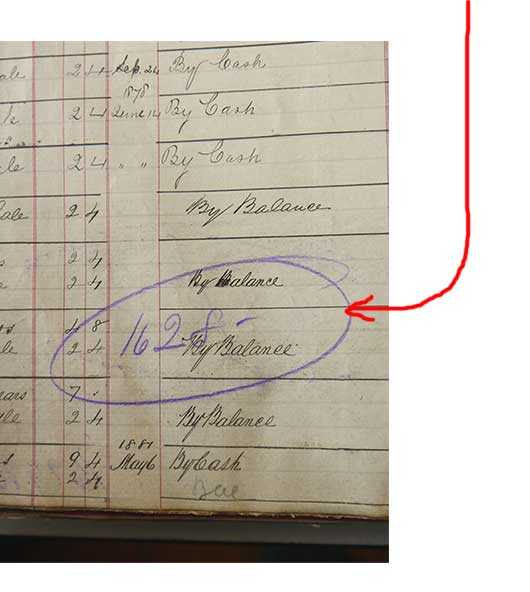 ale 2 4 Sep. 24 By Cash
1878
le 2 4 June 14 By Cash
cle 2 4 " " By Cash
Cale 2 4 By Balance
s 2 4
e 2 4 By Balance
rs 4 8
162
le 2 4 By Balance
ears 7 .
yle 2 4 By Balance
1881
s 9 4 May 6 By Cash
2 4